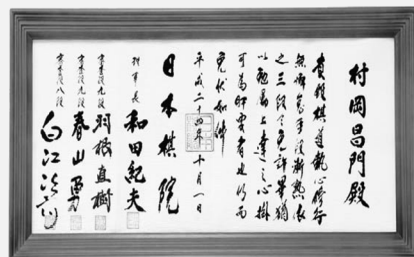 村岡昌門殿
貴殿棋道執心修行
無懈怠手段漸熟依
之三段令免許畢猶
以勉励上達之心掛
可為肝要者也仍而
免状如件
平成二十四年十月一日
日本棋院
理事長 和田紀夫
審査役九段 羽根直樹
審査役九段 春山勇
審査役八段 白江治彦